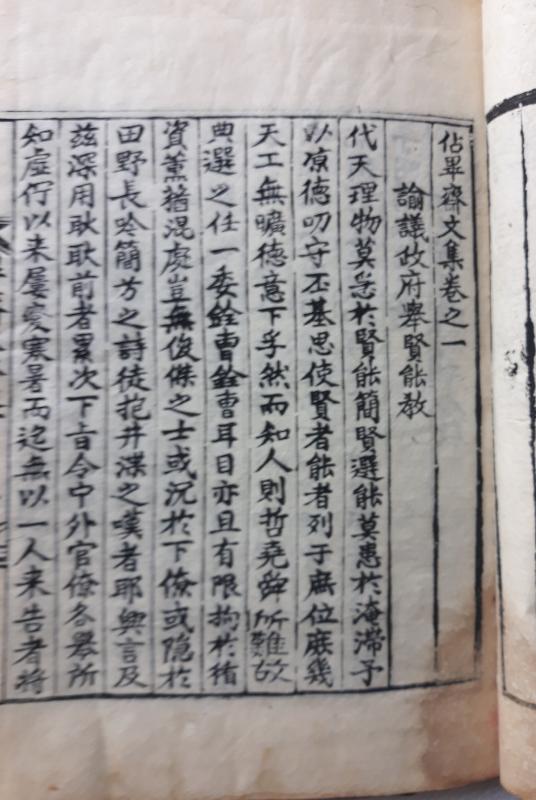 佔畢齋文集卷之一
諭議政府舉賢能教
代天理物莫急於賢能簡賢選能莫患於淹滯予
以凉德叨守丕基思使賢者能者列于庶位庶幾
天工無曠德意下孚然而知人則哲堯舜所難故
典選之任一委銓曹銓曹耳目亦且有限拘於循
資薰蕕混處豈無俊傑之士或沉於下僚或隱於
田野長吟簡兮之詩徒抱井渫之嘆者耶興言及
玆深用耿耿前者累次下旨令中外官僚各舉所
知虛佇以来屢變寒暑而迄無以一人来告者將